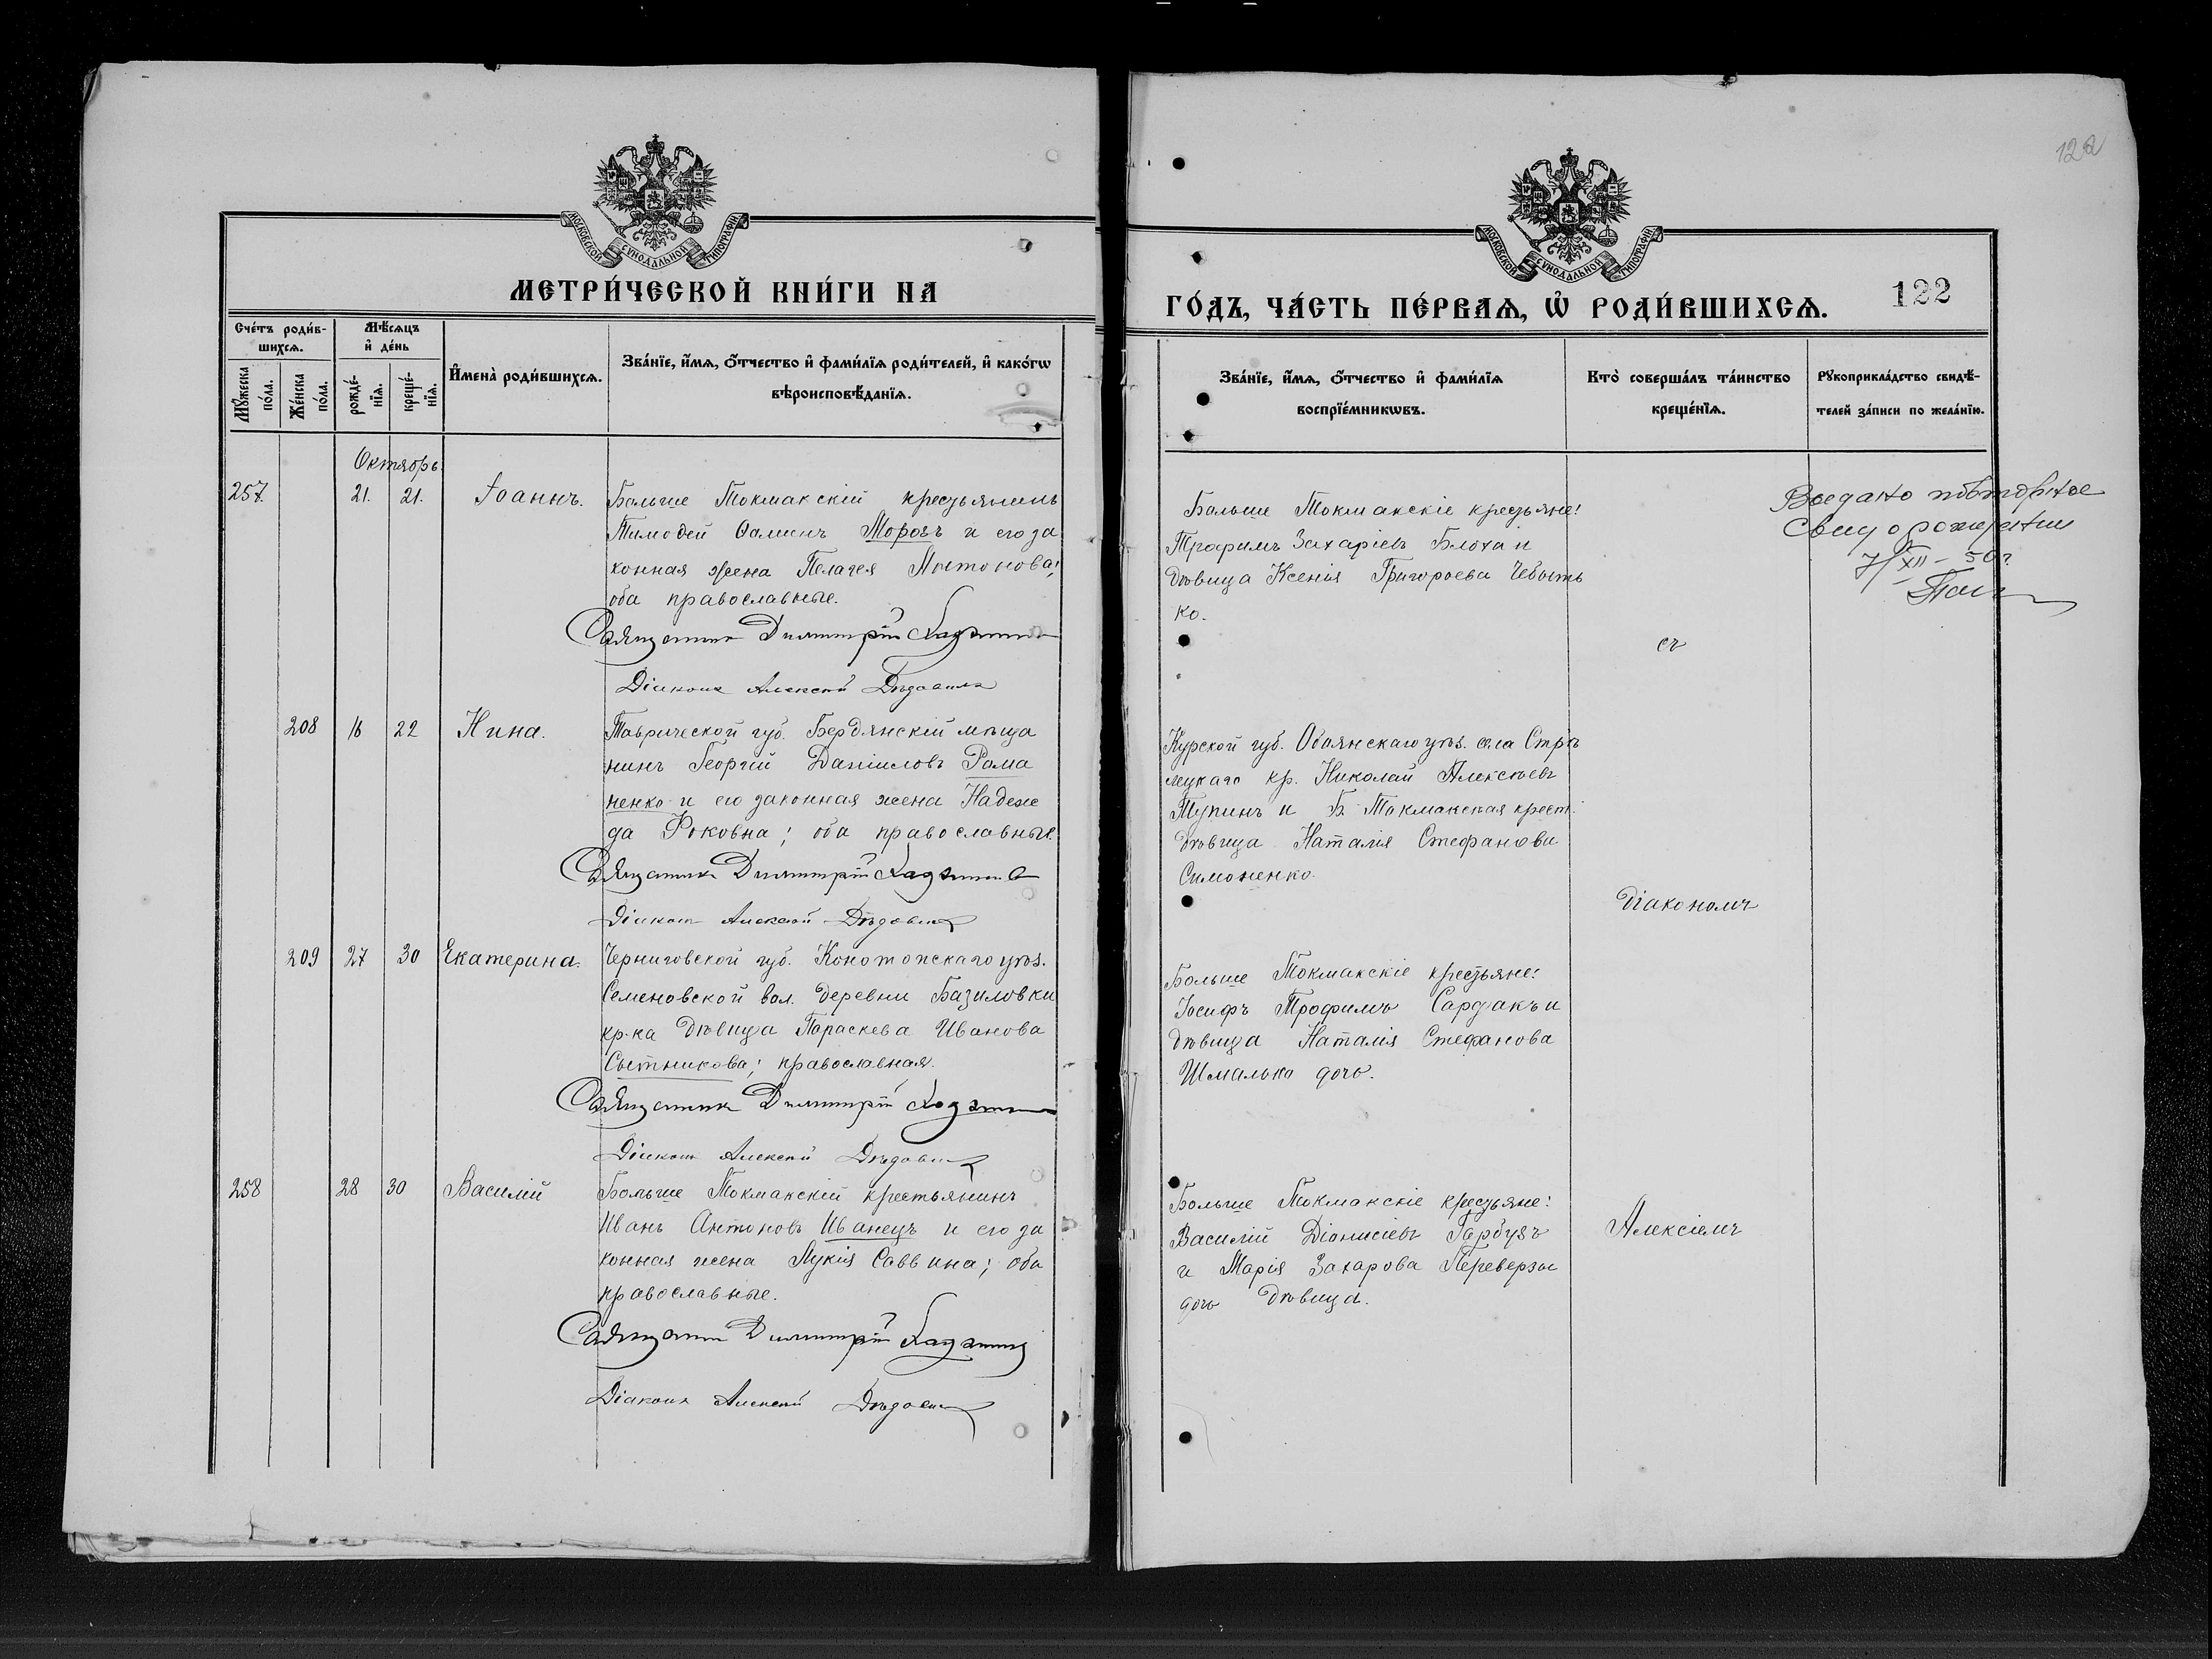 122
МОСКОВСКОЙ СѴНОДАЛЬНОЙ ТИПОГРАФІИ
МЕТРИ́ЧЕСКОЙ КНИ́ГИ НА
Сче́тъ роди́в-
шихсѧ.
Мѣ́сѧцъ
и҆ де́нь
Мꙋ́жеска
по́ла.
Же́нска
по́ла.
рожде́-
нїѧ.
креще́-
нїѧ.
И҆мена̀ роди́вшихсѧ.
Зва́нїе, и҆́мѧ, ѻ҆́тчество и҆ фами́лїѧ роди́телей, и҆ како́гѡ
вѣроисповѣ́данїѧ.
Октябрь
257. 21. 21. Іоаннъ. Больше Токмакскій крестьянинъ
Тимоѳей Ѳоминъ Морозъ и его за
конная жена Пелагея Антонова;
оба православные.
Священникъ Димитрій
Діаконъ Алексѣй
208 16 22 Нина. Таврической губ. Бердянскій мѣща
нинъ Георгій Даніиловъ Рома
ненко и его законная жена Надеж
да Фоковна; оба православные.
Священникъ Димитрій
Діаконъ Алексѣй
209 27 30 Екатерина. Черниговской губ. Конотопскаго уѣз.
Семеновской вол. деревни Базиловки
кр-ка дѣвица Параскева Иванова
Сытникова; православная.
Священникъ Димитрій
Діаконъ Алексѣй
258 28 30 Василій Больше Токмакскій крестьянинъ
Иванъ Антоновъ Иванецъ и его за
конная жена Лукія Саввина; оба
православные.
Священникъ Димитрій
Діаконъ Алексѣй
МОСКОВСКОЙ СѴНОДАЛЬНОЙ ТИПОГРАФІИ
ГО́ДЪ, ЧА́СТЬ ПЕ́РВАѦ, Ѡ҆ РОДИ́ВШИХСѦ.
122
Зва́нїе, и҆́мѧ, ѻ҆́тчество и҆ фами́лїѧ
воспрїе́мникѡвъ.
Кто̀ соверша́лъ та́инство
креще́нїѧ.
Рꙋкоприкла́дство свидѣ́-
телей за́писи по жела́нїю.
Больше Токмакскіе крестьяне:
Трофимъ Захаріевъ Блоха и
дѣвица Ксенія Григорьева Чебоить
ко.
Выдано повторное
Свид о рождении
7/XII - 50 г.
съ
Курской губ. Обоянскаго уѣз. села Стрѣ
лецкаго кр. Николай Алексѣевъ
Тупинъ и Б. Токмакская крест.
дѣвица Наталія Стефанова
Симоненко.
діакономъ
Больше Токмакскіе крестьяне:
Іосифъ Трофимъ Сардакъ и
дѣвица Наталія Стефанова
Шмалько дочь.
Больше Токмакскіе крестьяне:
Василій Діонисіевъ Гарбузъ
и Марія Захарова Переверзы
дочь дѣвица.
Алексіемъ